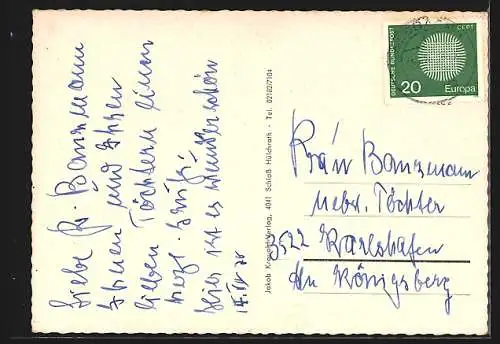 Liebe Fr. Banzmann
Ihnen und Ihren
lieben Töchtern einen
herzl. Gruß.
Hier ist es wunderschön
Jakob Krapohl-Verlag, 4041 Schloß Hülchrath - Tel. 02182/7104
DEUTSCHE BUNDESPOST
CEPT
20 Europa
Frau Banzmann
nebst Töchter
3522 Karlshafen
Königsberg